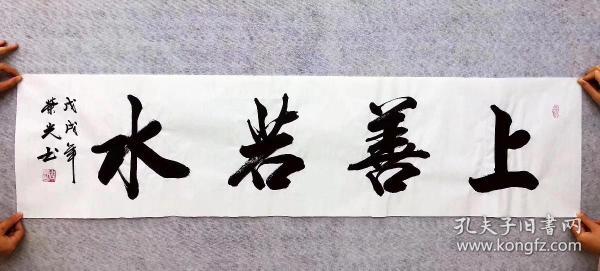 上善若水
戊戌年
荣光书
孔夫子旧书网
www.kongfz.com